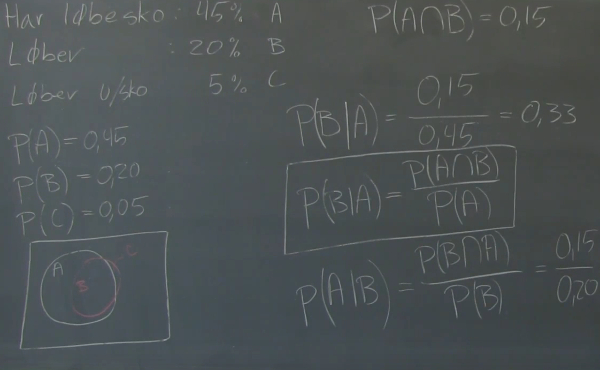 Har løbesko: 45% A
Løber : 20% B
Løber u/sko 5% C
P(A)=0,45
P(B)=0,20
P(C)=0,05
A
B
C
P(A∩B)=0,15
P(B|A) = 0,15/0,45 = 0,33
P(B|A) = P(A∩B)/P(A)
P(A|B) = P(B∩A)/P(B) = 0,15/0,20